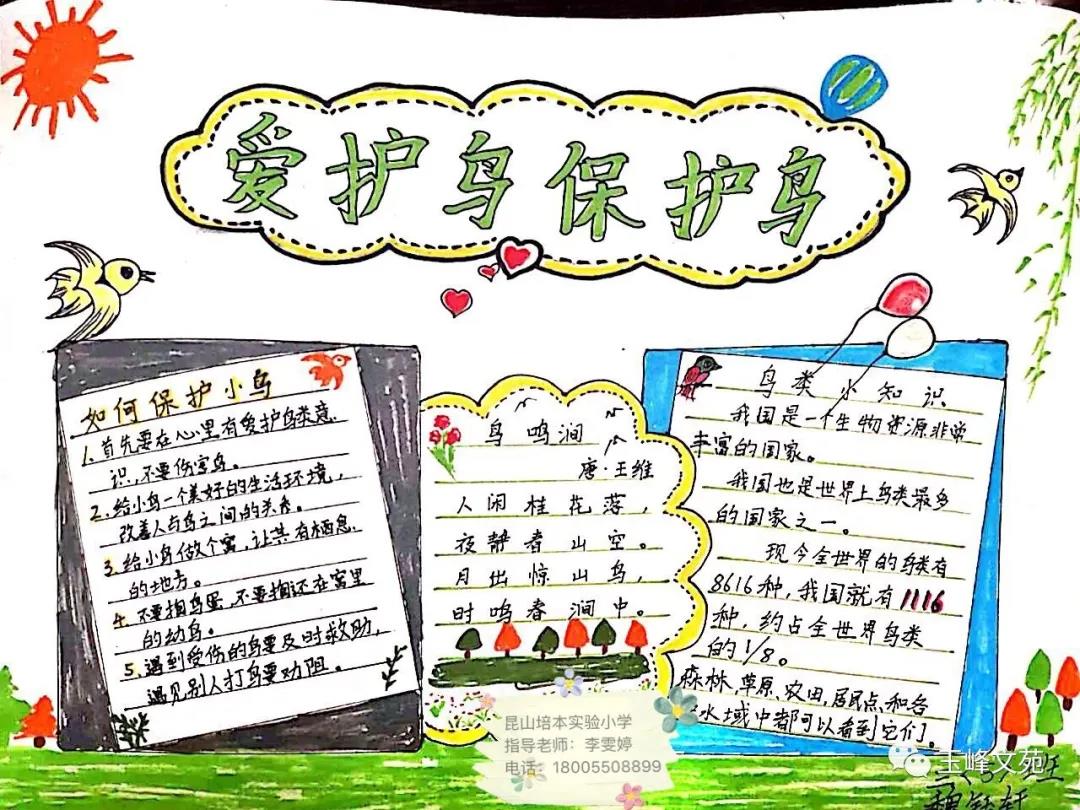 爱护鸟保护鸟
如何保护小鸟
1. 首先要在心里有爱护鸟类意
识，不要伤害鸟。
2. 给小鸟一个美好的生活环境，
改善人与鸟之间的关系。
3. 给小鸟做个窝，让其有栖息
的地方。
4. 不要掏鸟蛋，不要掏还在窝里
的幼鸟。
5. 遇到受伤的鸟要及时救助，
遇见别人打鸟要劝阻。
鸟鸣涧
唐·王维
人闲桂花落，
夜静春山空。
月出惊山鸟，
时鸣春涧中。
鸟类小知识
我国是一个生物资源非常
丰富的国家。
我国也是世界上鸟类最多
的国家之一。
现今全世界的鸟类有
8616种，我国就有1116
种，约占全世界鸟类
的1/8。
森林，草原、农田，居民点、和各
水域中都可以看到它们。
昆山培本实验小学
指导老师：李雯婷
电话：18005508899
玉峰文苑
班